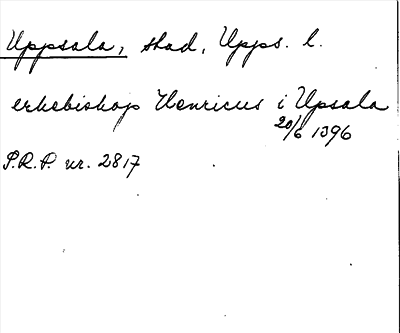 Uppsala, stad, Upps. l.
erkebiskop Henricus i Upsala
20/6 1396
P.R.P. nr. 2817